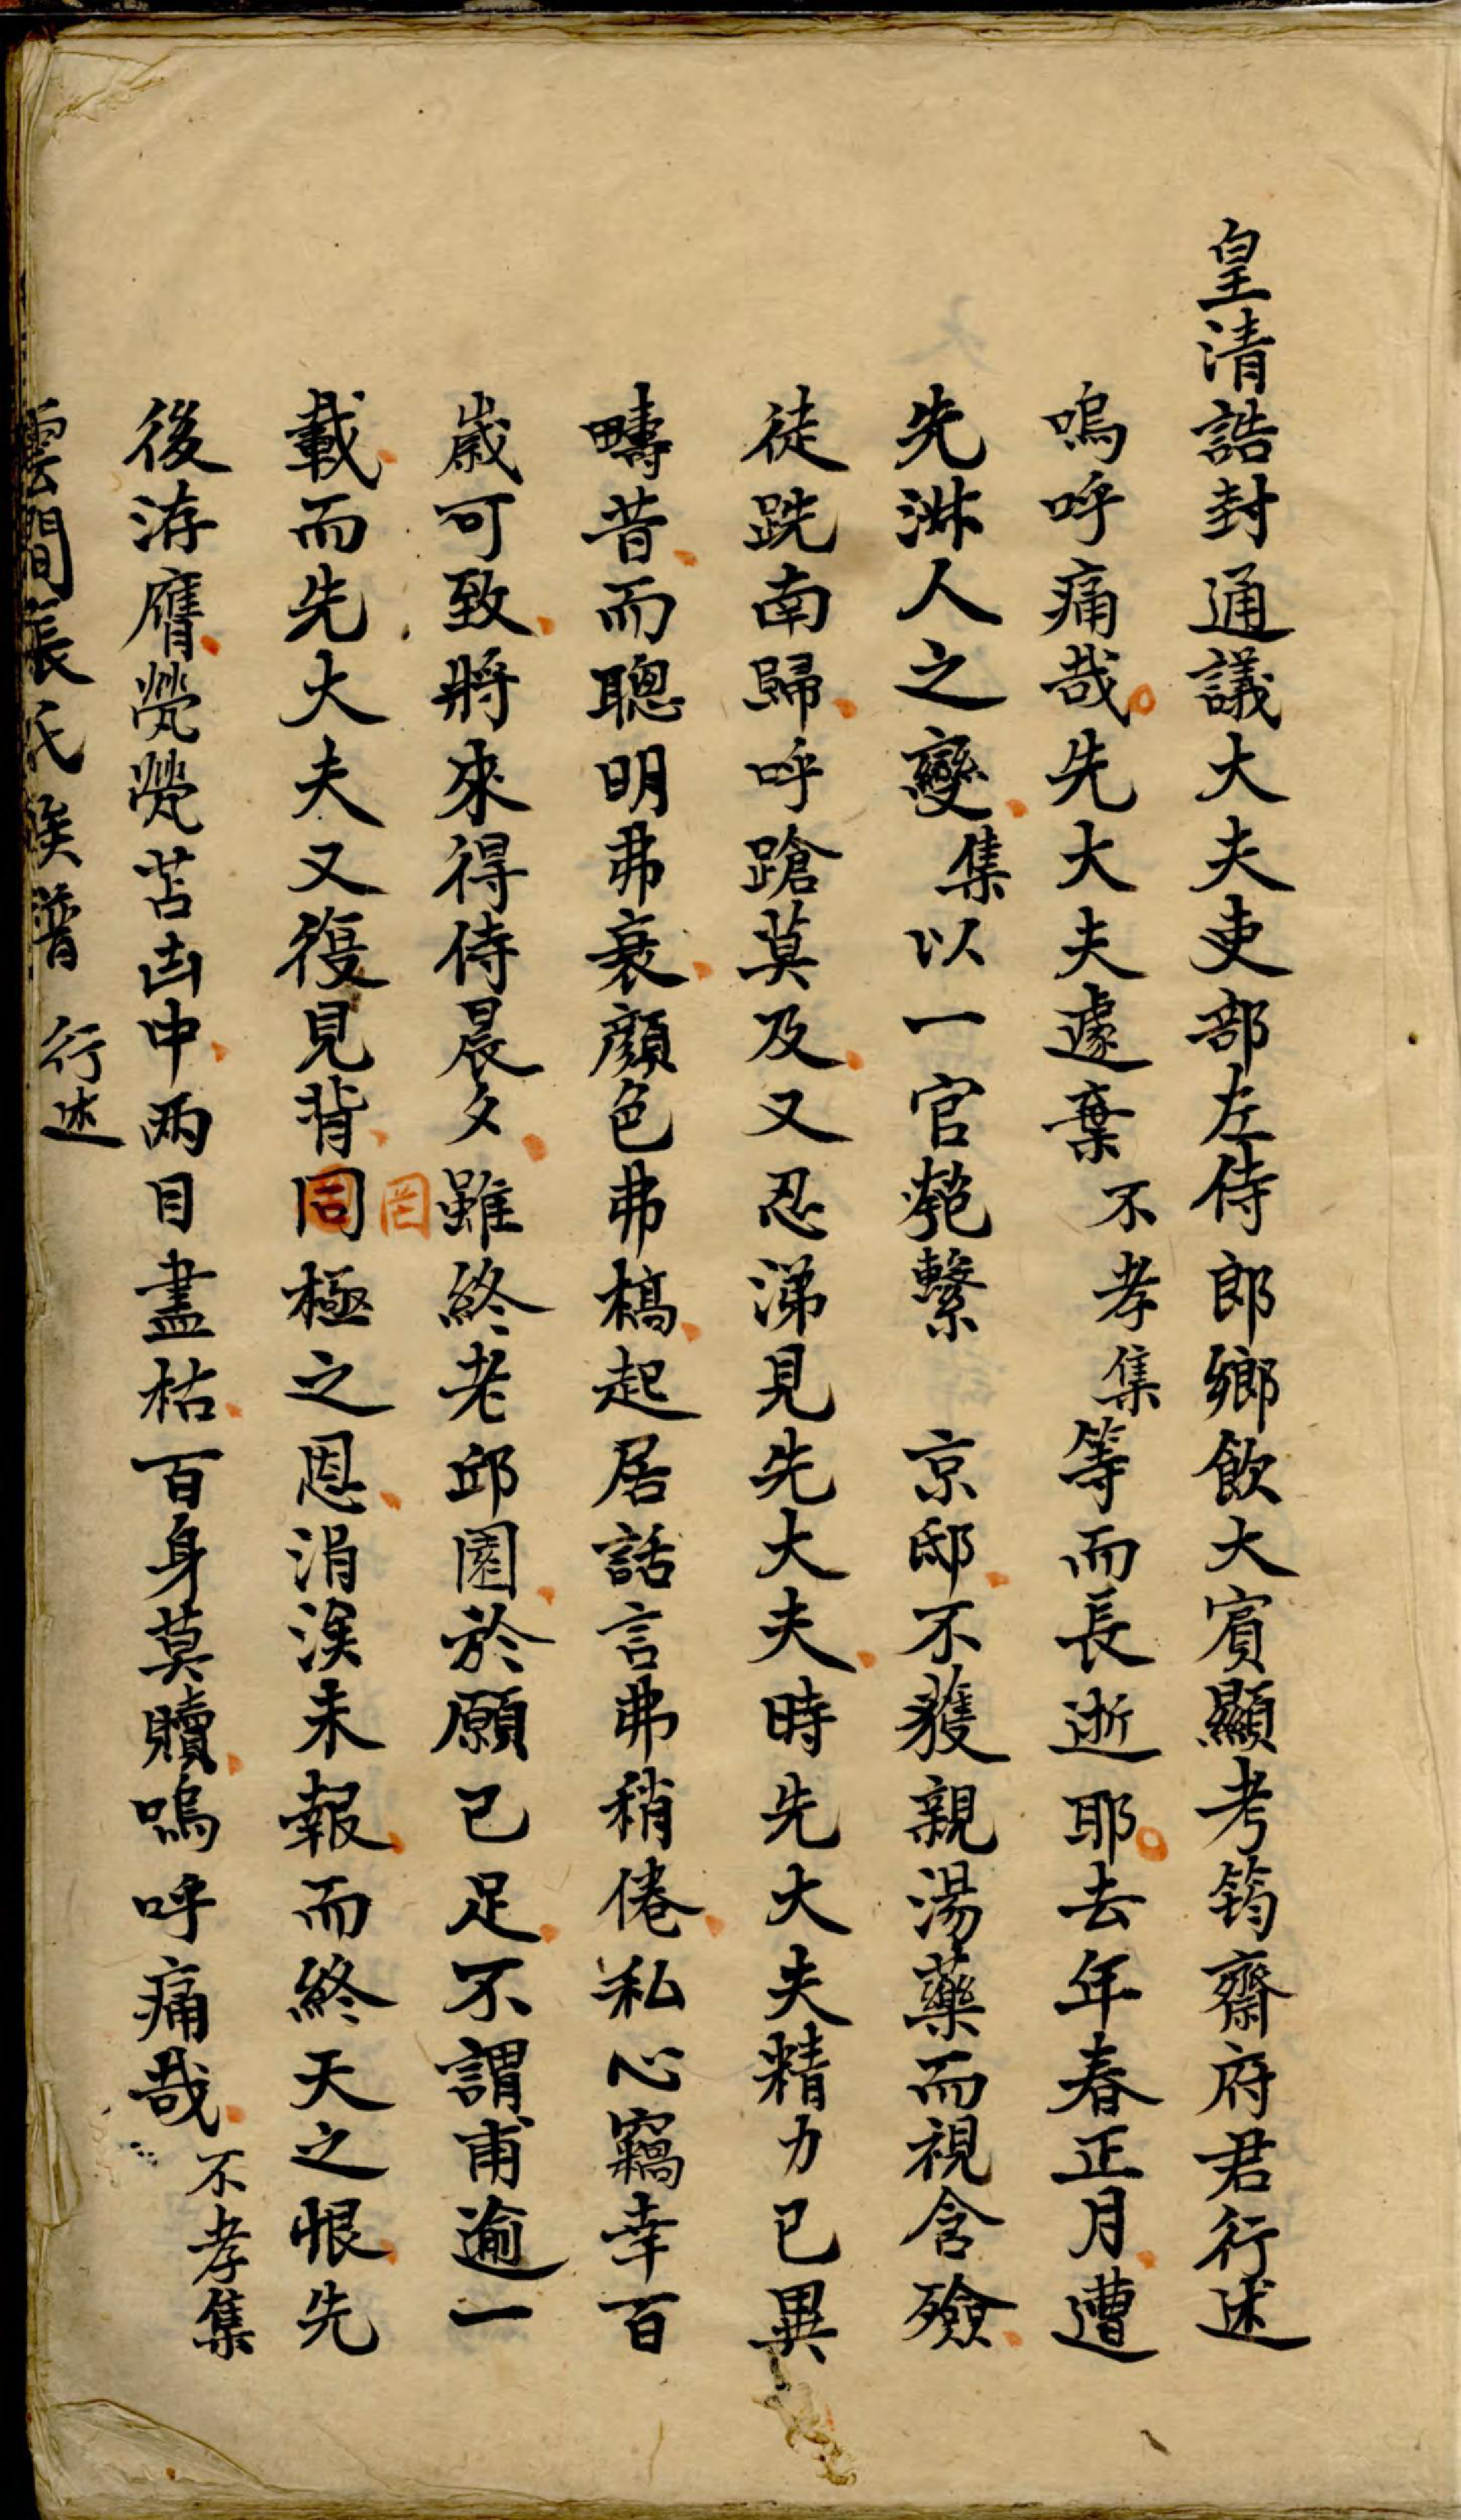 皇清誥封通議大夫吏部左侍郎鄉飲大賓顯考筠齋府君行述
嗚呼痛哉先大夫遽棄不孝集等而長逝耶去年春正月遭
先淋人之變集以一官匏繫 京邸不獲親湯藥而視含殮
徒跣南歸呼蹌莫及又忍涕見先大夫時先大夫精力已異
疇昔而聰明弗衰顏色弗槁起居話言弗稍倦私心竊幸百
歲可致將來得侍晨夕雖終老邱園於願已足不謂甫逾一
罔
載而先大夫又復見背同極之恩涓涘未報而終天之恨先
後洊膺煢煢苫凷中兩目盡枯百身莫贖嗚呼痛哉不孝集
雲間張氏族譜 行述